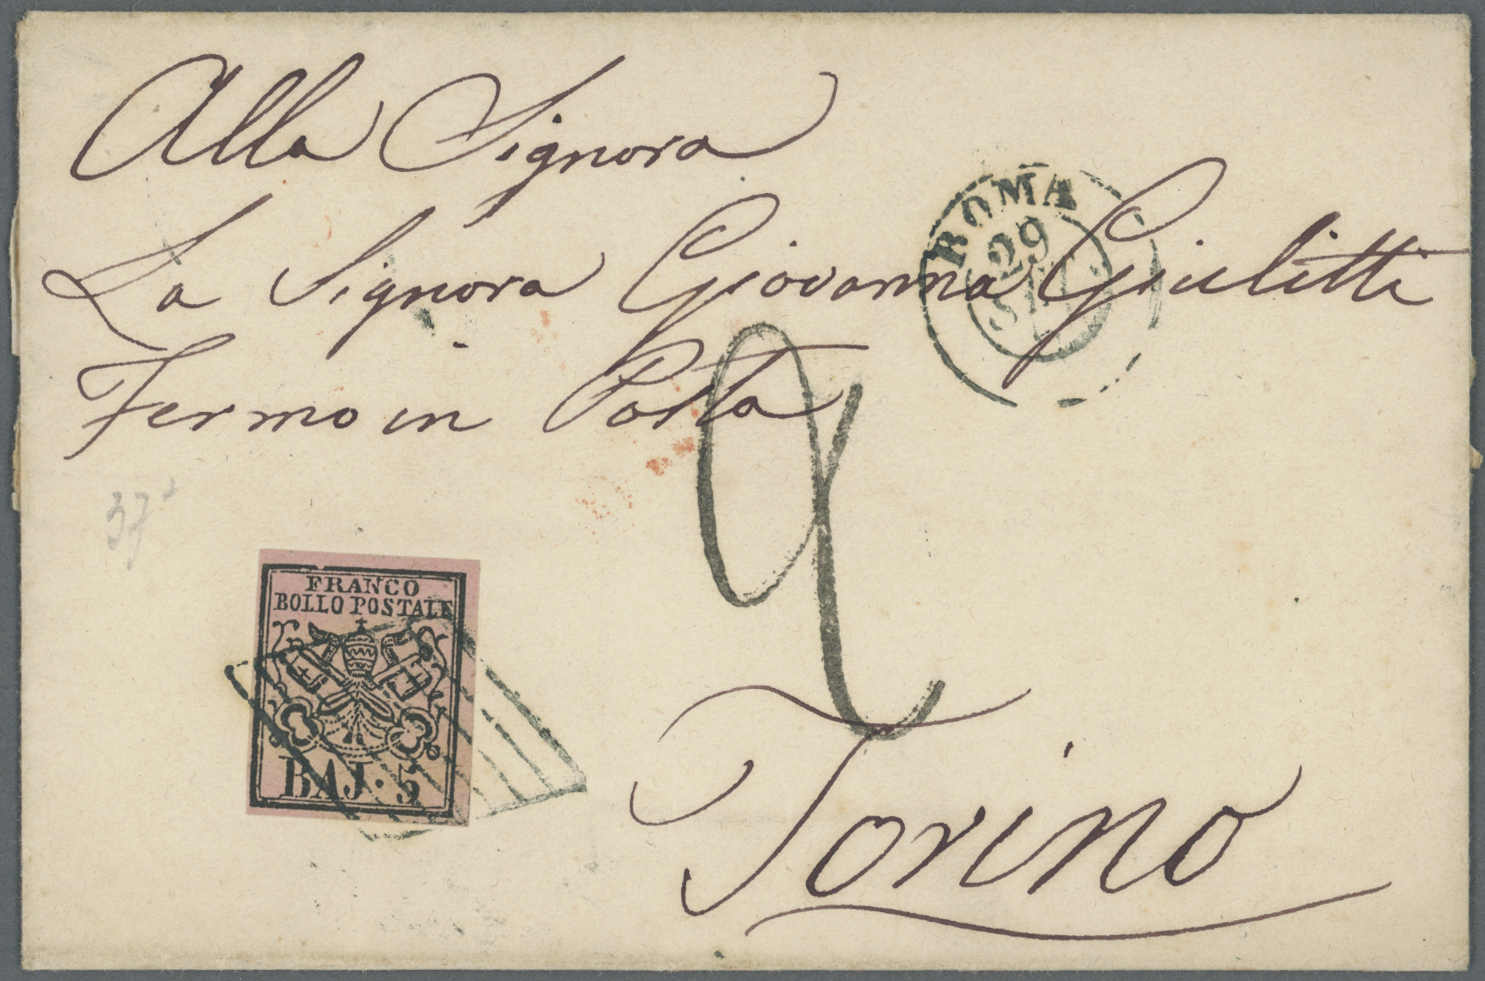 Alla Signora
La Signora Giovanna Giulitti
Fermo in Posta
ROMA
29
SET.
2
37
FRANCO
BOLLO POSTALE
BAJ. 5
Torino